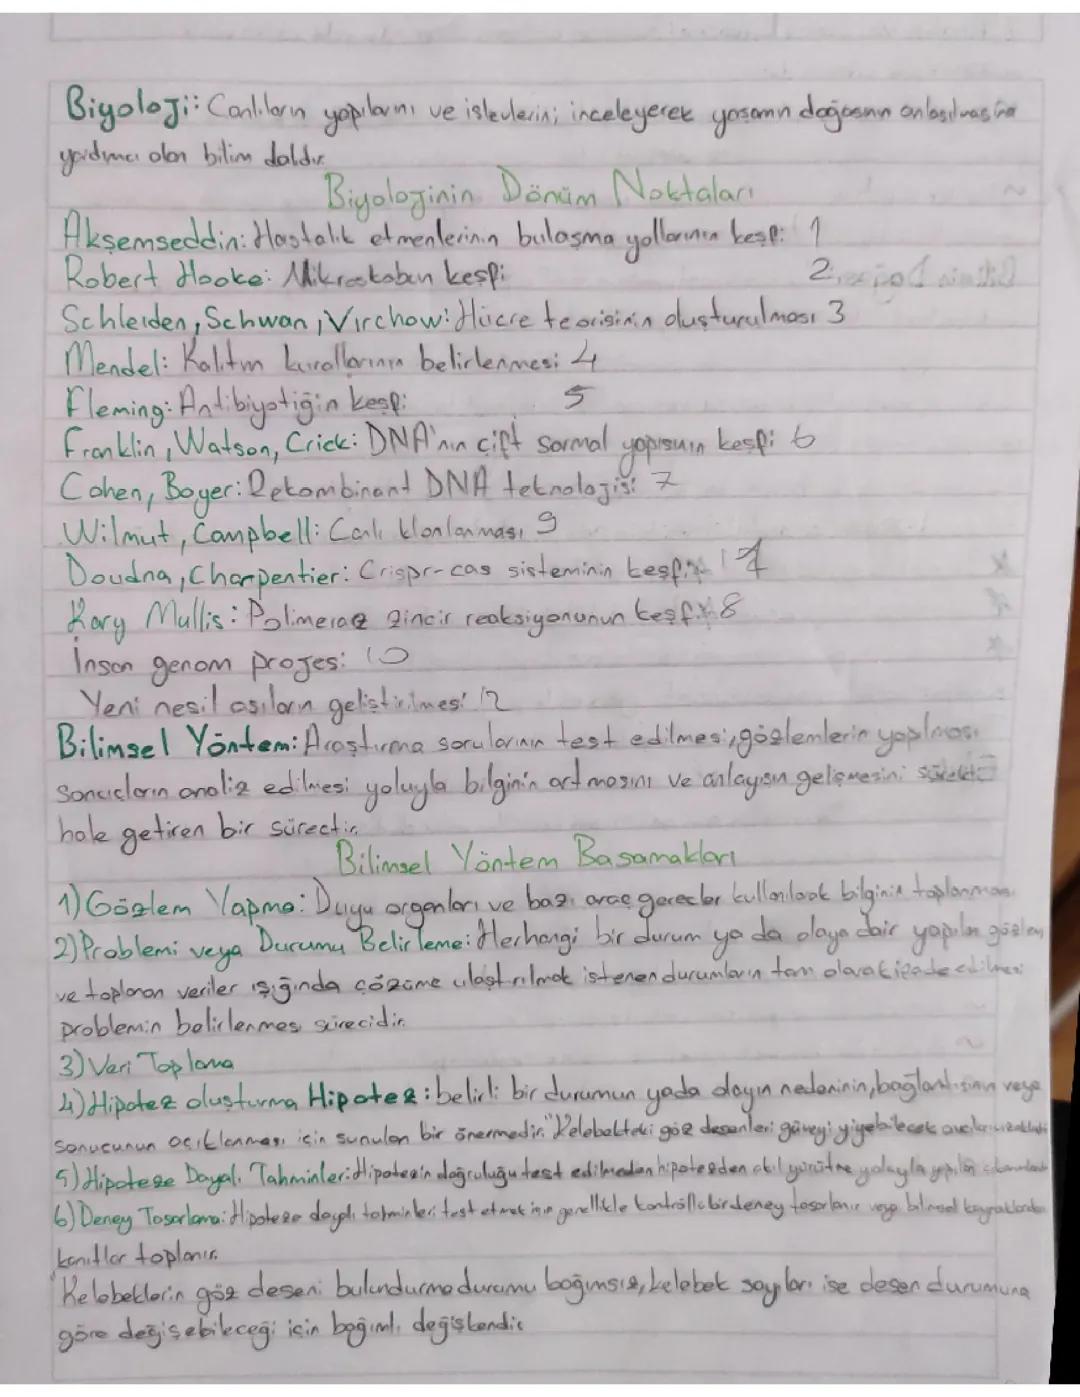 Biyoloji: Canlıların yapılarını ve işlevlerini inceleyerek yaşamın doğasının anlaşılmasına
yardımcı olan bilim dalıdır.
Biyolojinin Dönüm Noktaları
Akşemseddin: Hastalık etmenlerinin bulaşma yollarının keşfi 1
Robert Hooke: Mikroskobun keşfi 2
Schleiden, Schwan, Virchow: Hücre teorisinin oluşturulması 3
Mendel: Kalıtım kurallarının belirlenmesi 4
Fleming: Antibiyotiğin keşfi 5
Franklin, Watson, Crick: DNA'nın çift sarmal yapısının keşfi 6
Cohen, Boyer: Rekombinant DNA teknolojisi 7
Wilmut, Campbell: Canlı klonlanması 9
Doudna, Charpentier: Crispr-cas sisteminin keşfi
Kary Mullis: Polimeraz zincir reaksiyonunun keşfi 8
İnsan genom projesi 10
Yeni nesil aşıların geliştirilmesi 12
Bilimsel Yöntem: Araştırma sorularının test edilmesi, gözlemlerin yapılması
sonuçların analiz edilmesi yoluyla bilginin artmasını ve anlayışın gelişmesini sürekli
hale getiren bir süreçtir.
Bilimsel Yöntem Basamakları
1) Gözlem Yapma: Duyu organları ve bazı araç gereçler kullanılarak bilginin toplanması
2) Problemi veya Durumu Belirleme: Herhangi bir durum ya da olaya dair yapılan gözlem
ve toplanan veriler ışığında çözüme ulaştırılmak istenen durumların tam olarak ifade edilmesi
problemin belirlenmesi sürecidir.
3) Veri Toplama
4) Hipotez oluşturma Hipotez: belirli bir durumun yada olayın nedeninin, bağlantısının veya
sonucunun açıklanması için sunulan bir önermedir. "Kelebekteki göz desenleri güveyi yiyebilecek
5) Hipoteze Dayalı Tahminler: Hipotezin doğruluğu test edilmeden hipotezden akıl yürütme yoluyla yapılan
6) Deney Tasarlama: Hipoteze dayalı tahminleri test etmek için genellikle kontrollü bir deney tasarlanır veya bilimsel kaynaklardan
kanıtlar toplanır.
"Kelebeklerin göz deseni bulundurma durumu bağımsız, kelebek sayıları ise desen durumuna
göre değişebileceği için bağımlı değişkendir